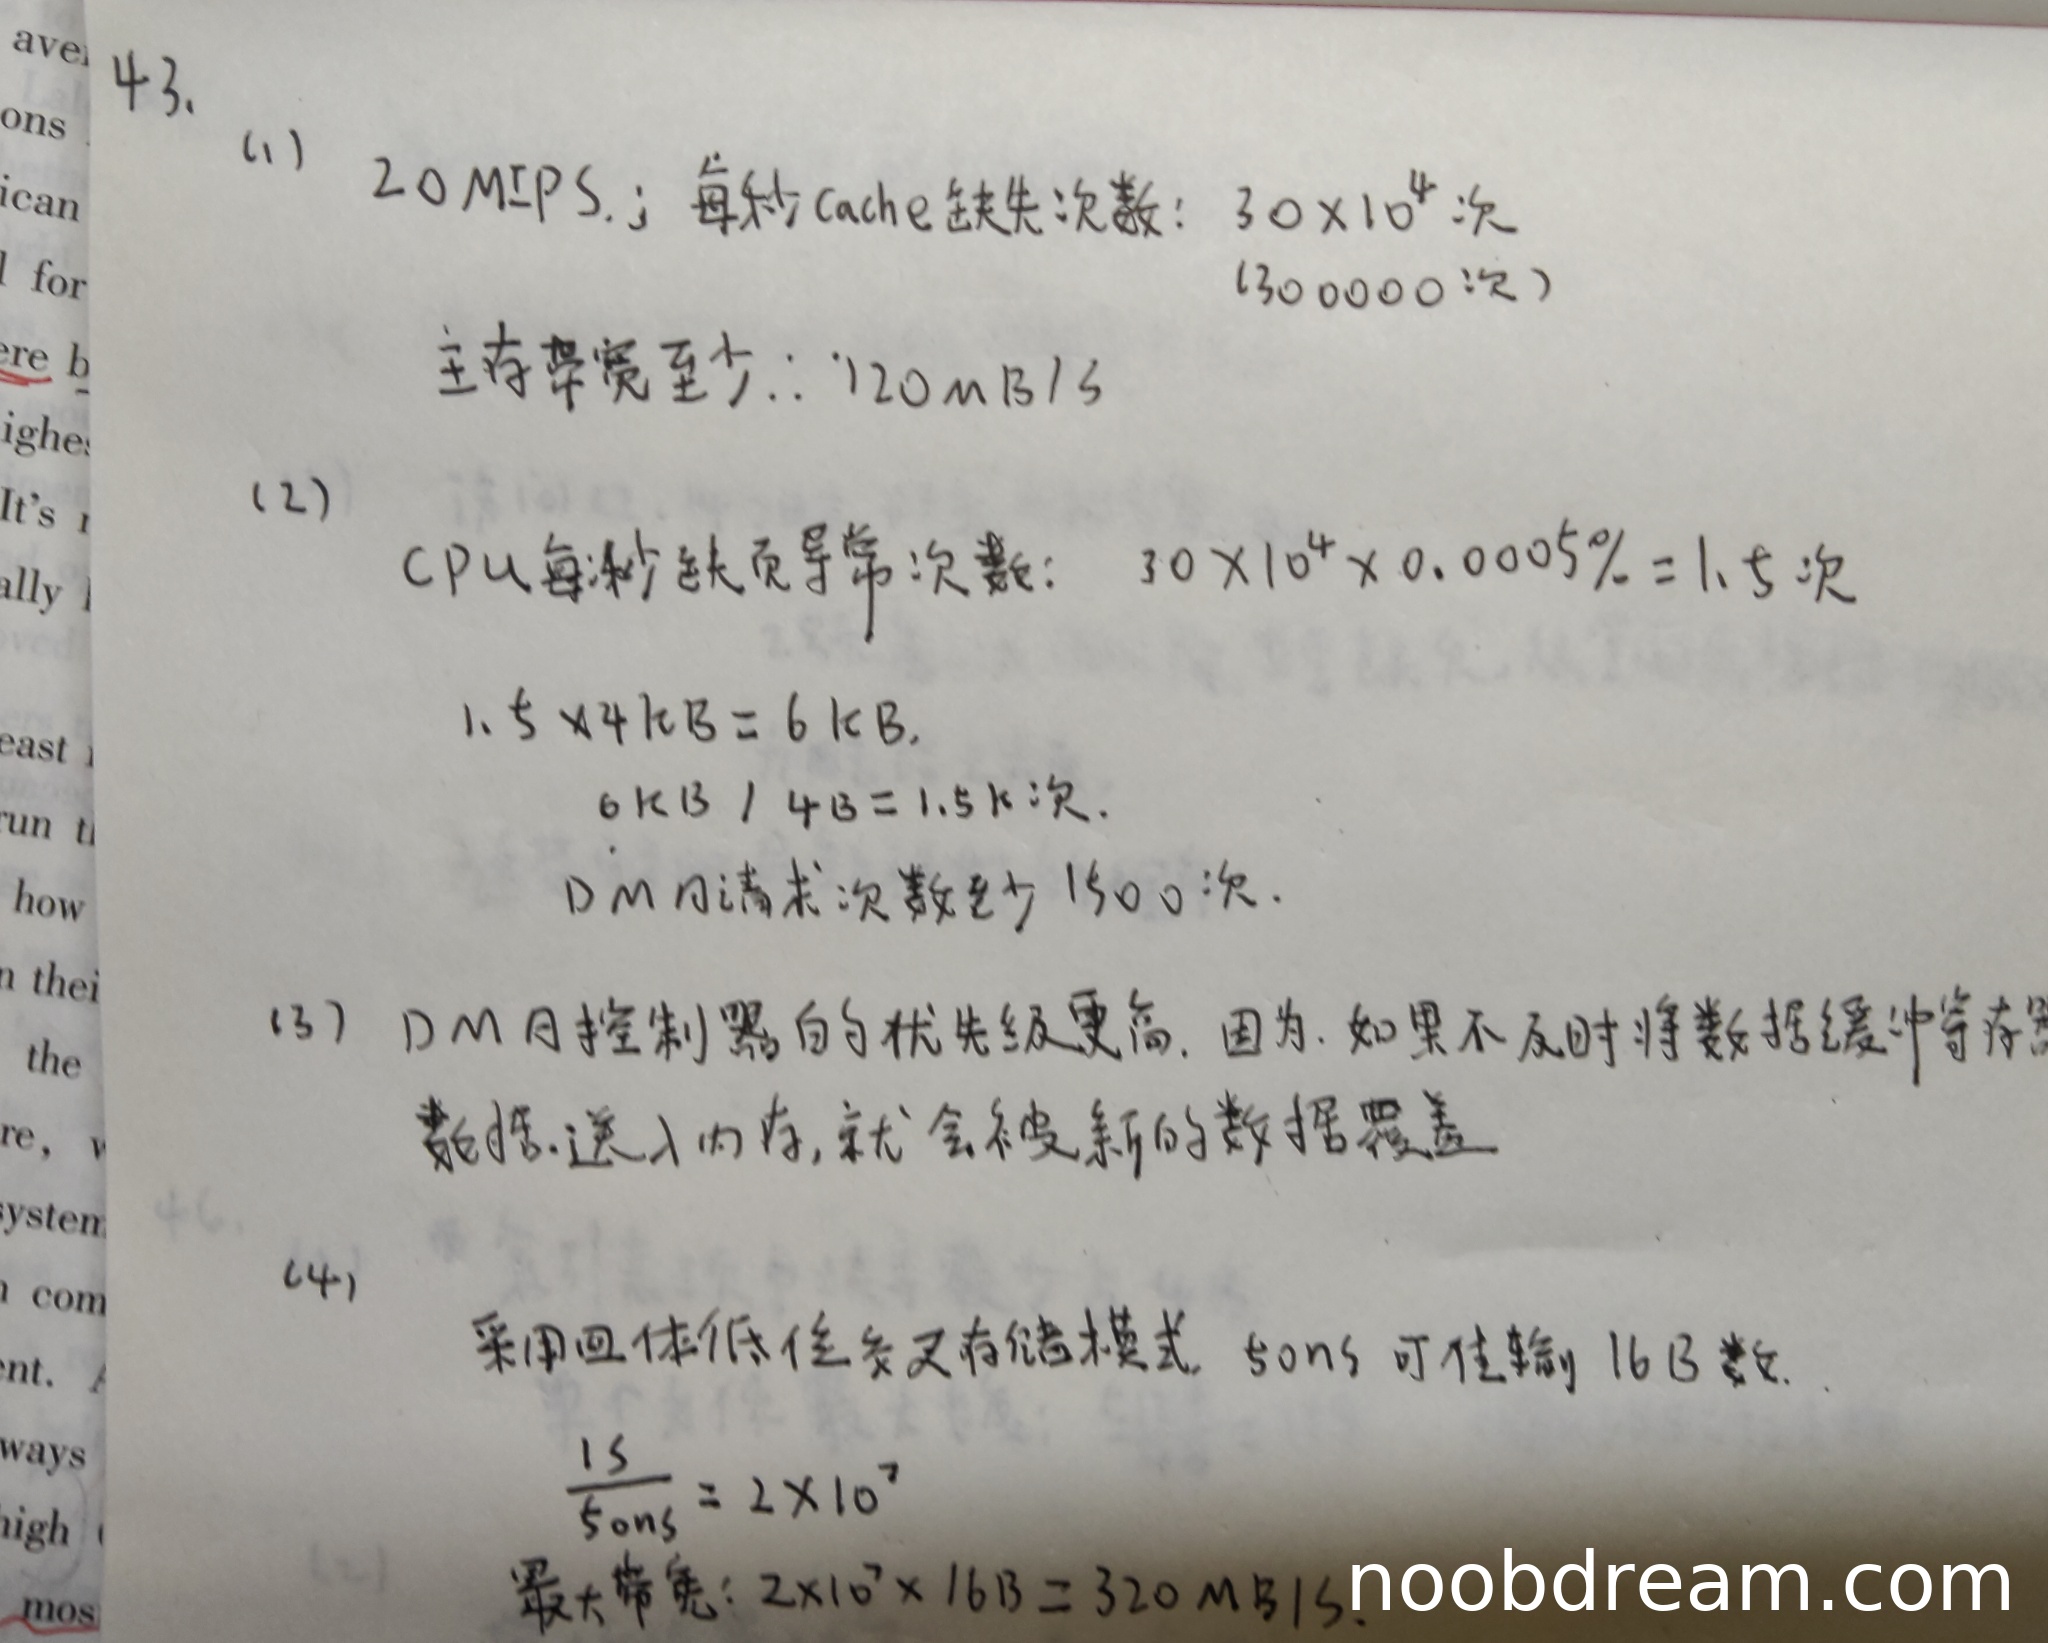 ave
ons
ican
l for
ere b
ighes
It's r
ally
east
run t
how
n thei
the
re, w
system
n com
ent. A
ways
high
mos
43.
(1) 20MIPS.; 每秒Cache缺失次数: 30×10⁴次
(300000次)
主存带宽至少: 120MB/S
(2)
CPU每秒缺页异常次数: 30×10⁴×0.0005%=1.5次
1.5×4KB=6KB.
6KB/4B=1.5K次.
DMA请求次数至少1500次.
(3) DMA控制器的优先级更高. 因为.如果不及时将数据缓冲寄存器
数据.送入内存,就会被新的数据覆盖
(4)
采用四体低位交叉存储模式. 50ns可传输16B数.
1S/50ns=2×10⁷
最大带宽:2×10⁷×16B=320MB/S.
46.
noobdream.com